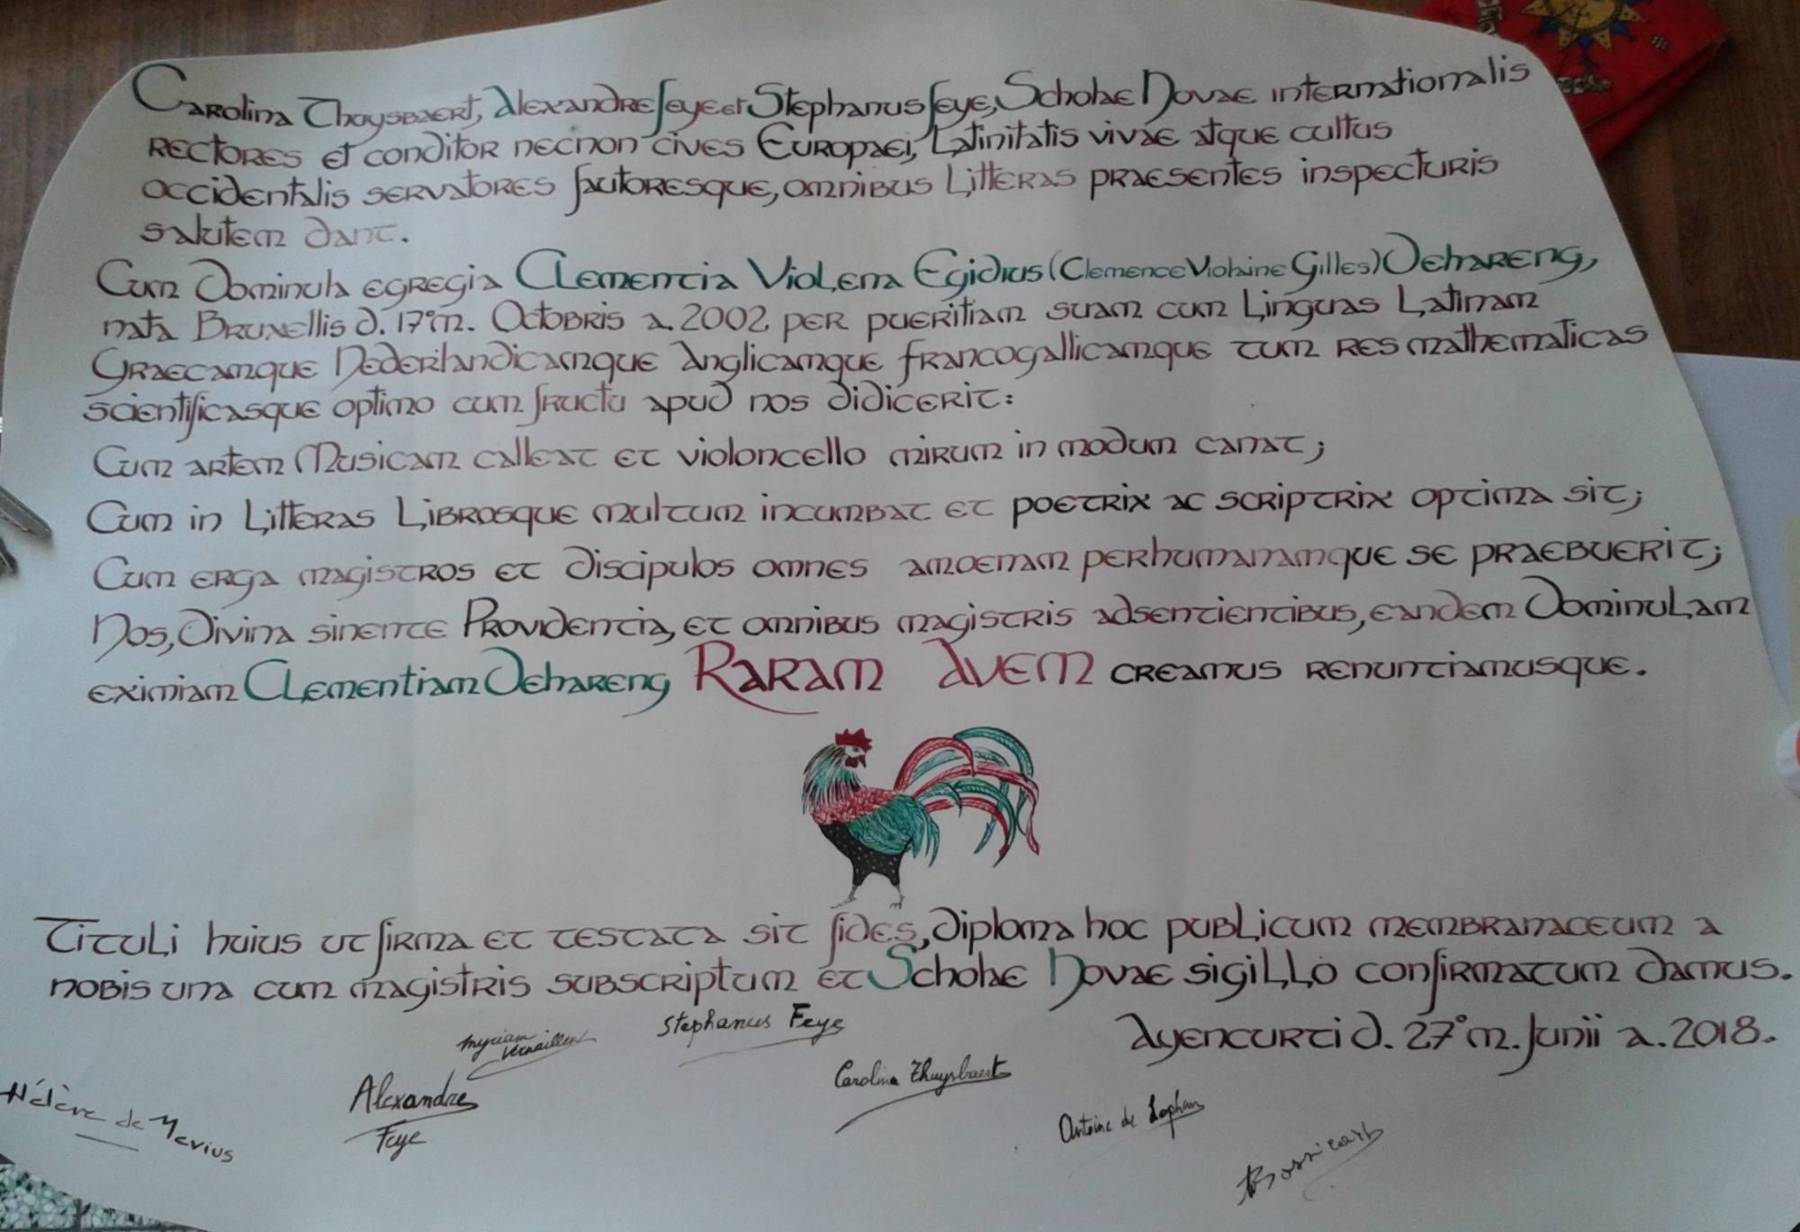 Carolina Thuysbaert, Alexandre Feye et Stephanus Feye, Scholae Novae internationalis
rectores et conditor necnon cives Europaei, Latinitatis vivae atque cultus
occidentalis servatores fautoresque, omnibus Litteras praesentes inspecturis
salutem dant.
Cum Dominula egregia Clementia Violena Egidius (Clemence Violaine Gilles) Dehareng,
nata Bruxellis d. 17° m. Octobris a. 2002 per pueritiam suam cum Linguas Latinam
Graecamque Nederlandicamque Anglicamque francogallicamque tum res mathematicas
scientificasque optimo cum fructu apud nos didicerit:
Cum artem Musicam calleat et violoncello mirum in modum canat;
Cum in Litteras Librosque multum incumbat et poetrix ac scriptrix optima sit;
Cum erga magistros et discipulos omnes amoenam perhumanamque se praebuerit;
Nos, Divina sinente Providentia, et omnibus magistris adsentientibus, eandem Dominulam
eximiam Clementiam Dehareng Raram Avem creamus renuntiamusque.
Tituli huius ut firma et testata sit fides, diploma hoc publicum membranaceum a
nobis una cum magistris subscriptum et Scholae Novae sigillo confirmatum damus.
Ayencurti d. 27° m. Junii a. 2018.
Stephanus Feye
Myriam
Carolina Thuysbaert
Alexandre
Feye
Hélène de Mevius
Antoine de